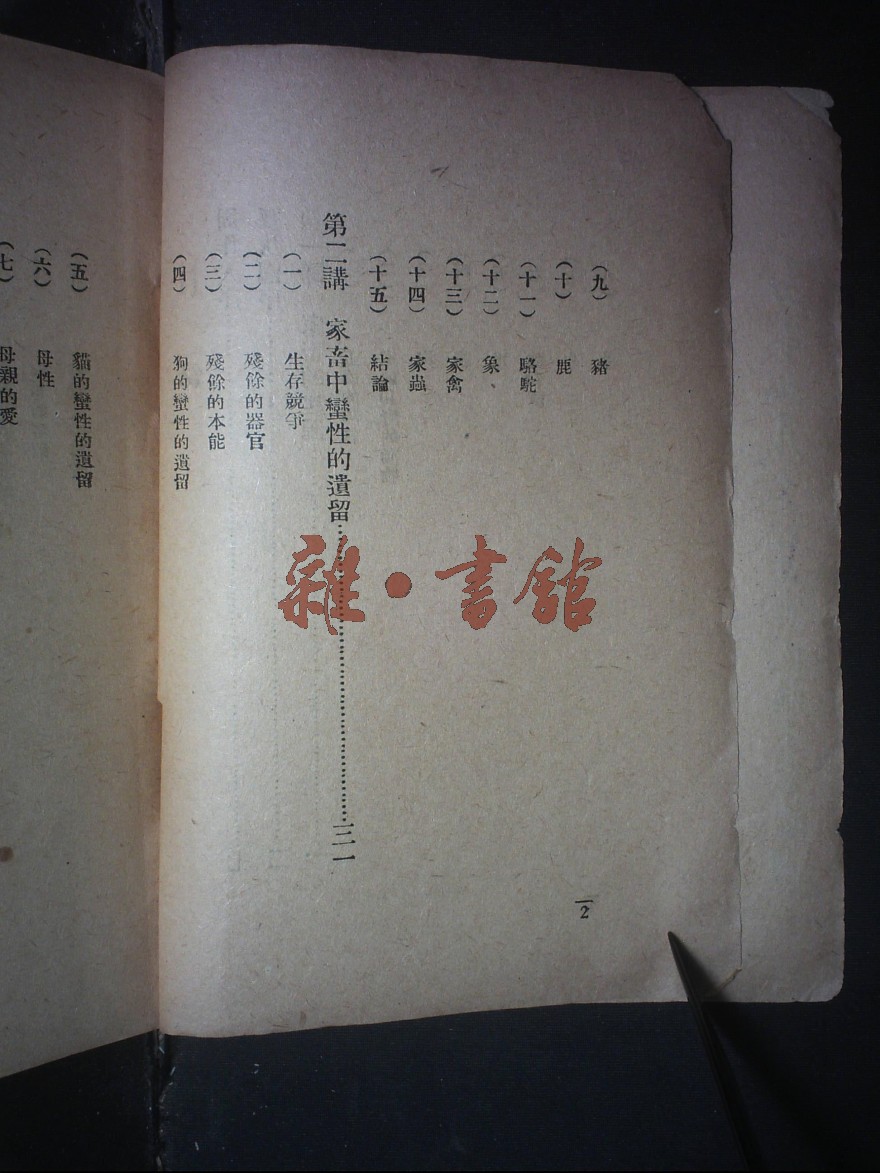 (九) 豬
(十) 鹿
(十一) 駱駝
(十二) 象、
(十三) 家禽
(十四) 家蟲
(十五) 結論
第二講 家畜中蠻性的遺留…………………………三一
(一) 生存競爭
(二) 殘餘的器官
(三) 殘餘的本能
(四) 狗的蠻性的遺留
2
(五) 貓的蠻性的遺留
(六) 母性
(七) 母親的愛
雜•書館